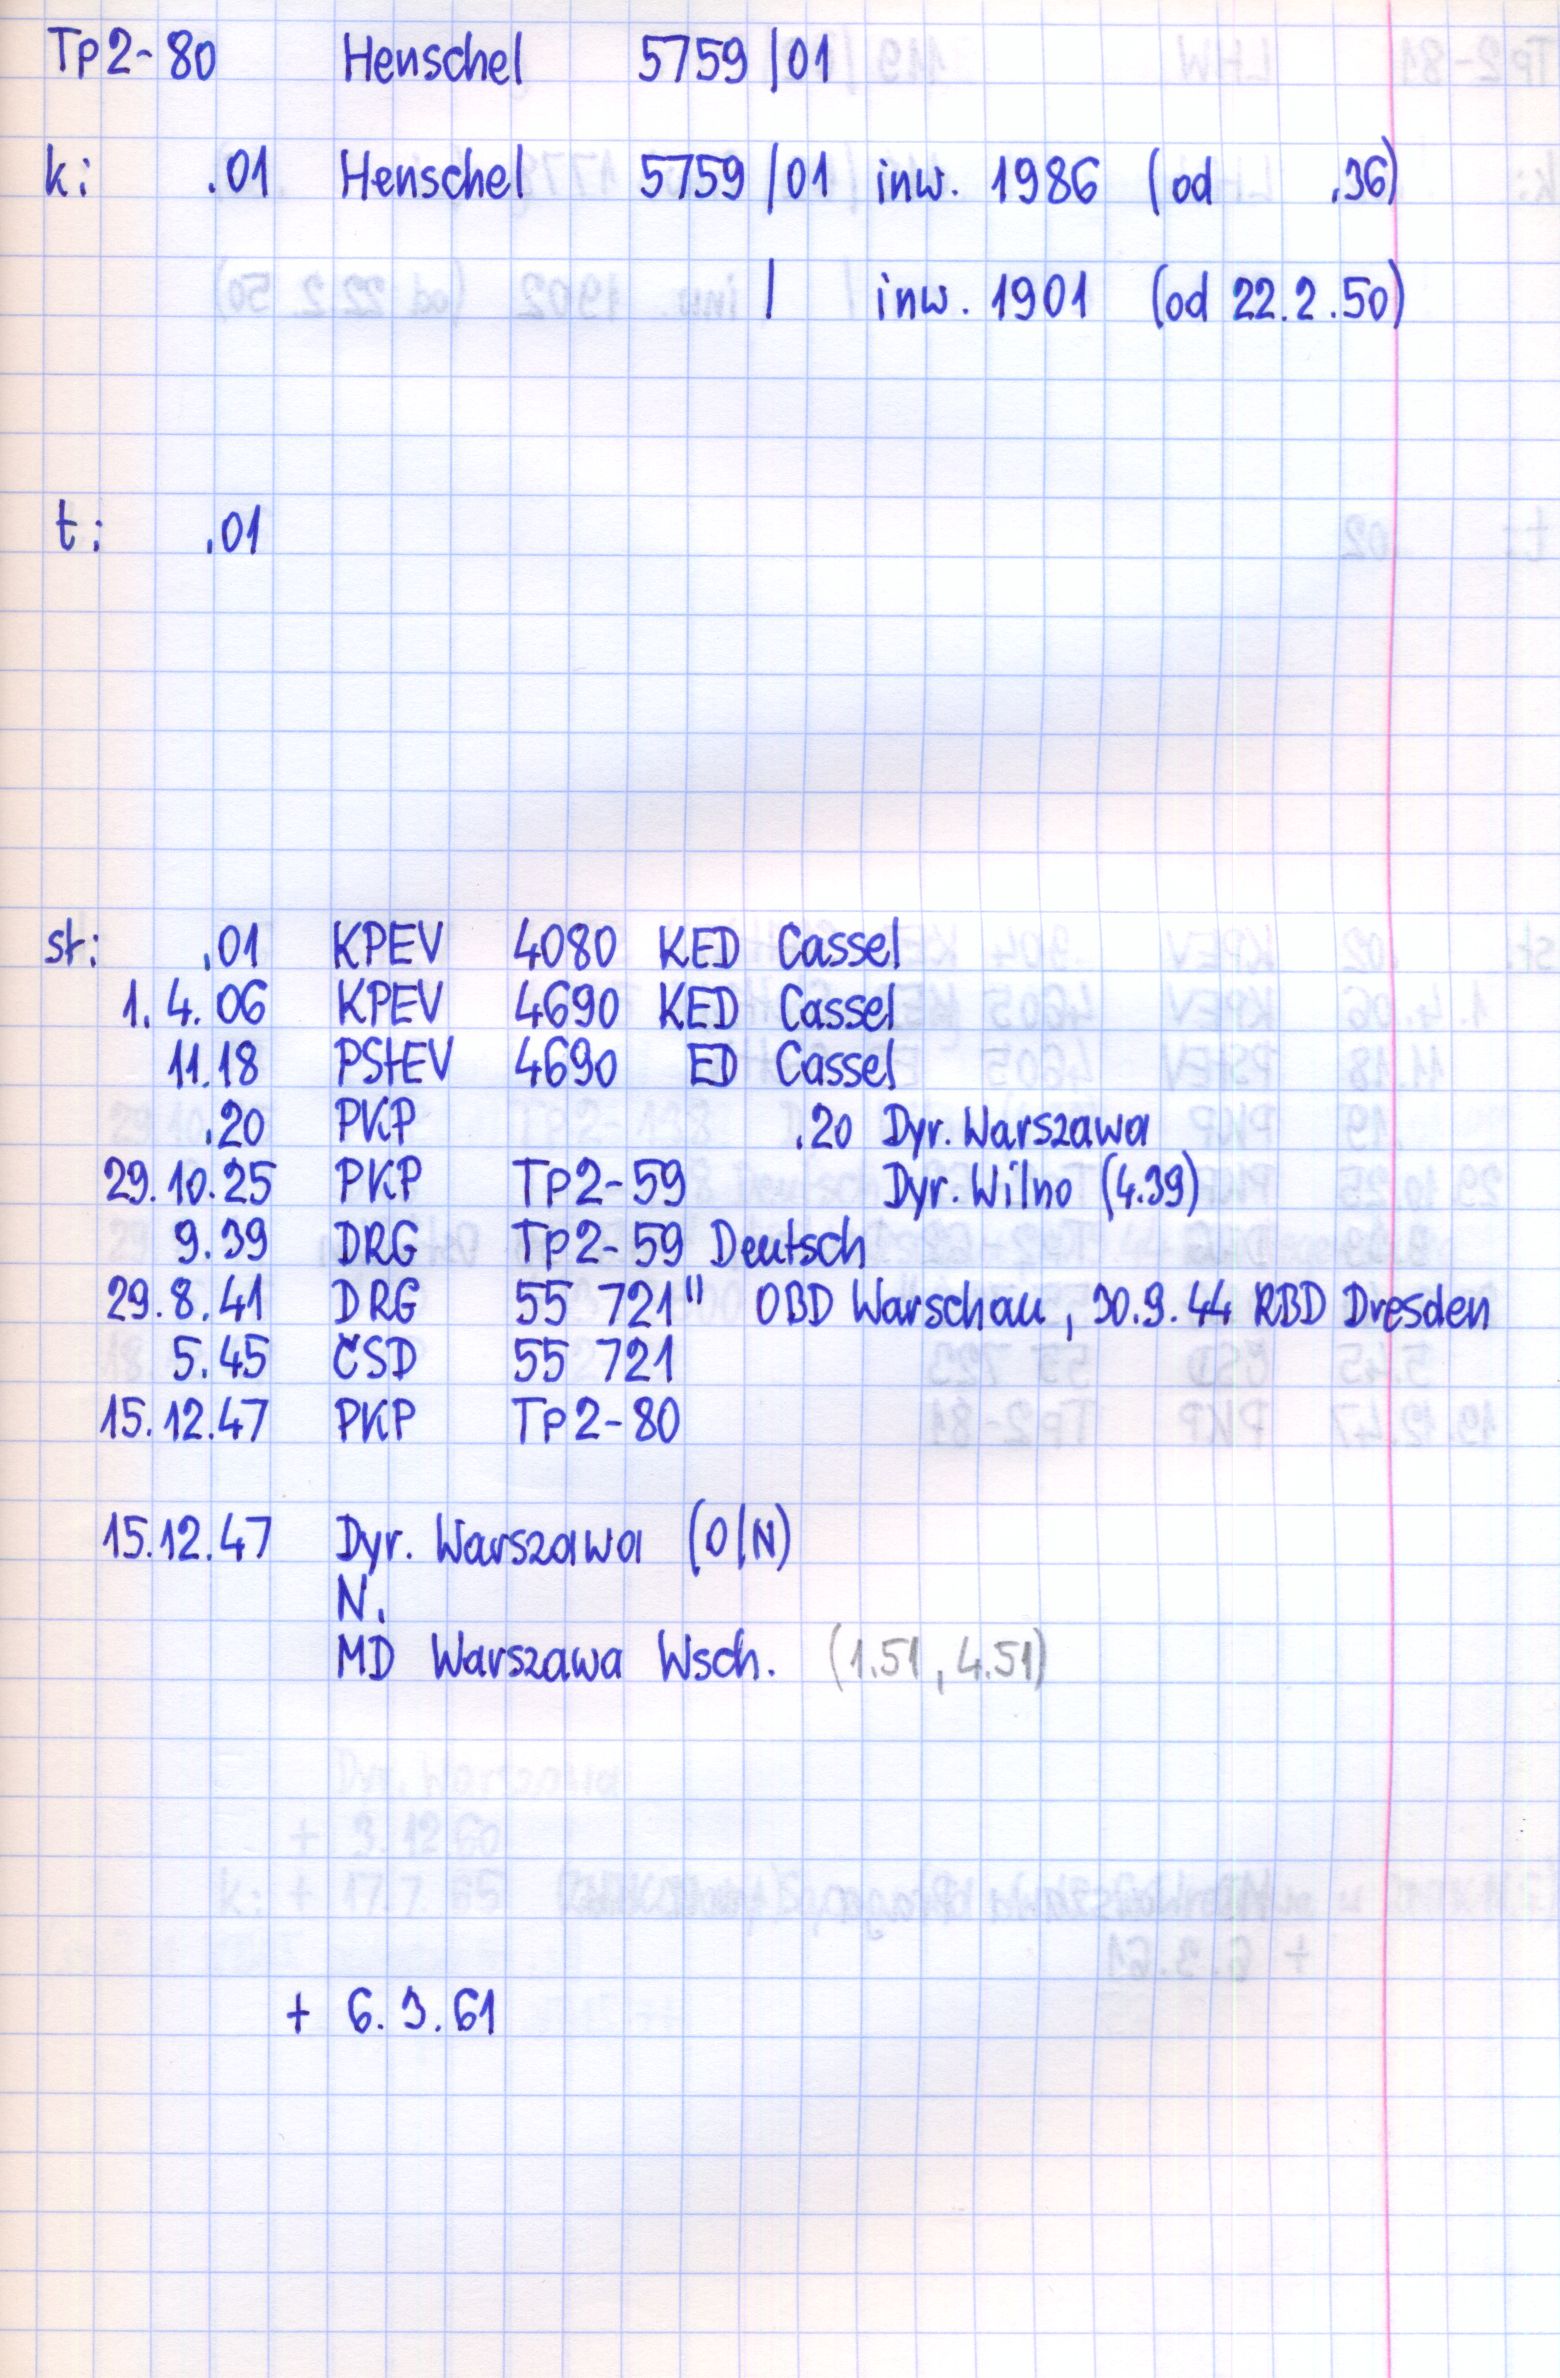 Tp2-80 Henschel 5759/01
k: .01 Henschel 5759/01 inw. 1986 (od .36)
/ inw. 1901 (od 22.2.50)
t: .01
st: .01 KPEV 4080 KED Cassel
1.4.06 KPEV 4690 KED Cassel
11.18 PStEV 4690 ED Cassel
.20 PKP .20 Dyr. Warszawa
29.10.25 PKP Tp2-59 Dyr. Wilno (4.39)
9.39 DRG Tp2-59 Deutsch
29.8.41 DRG 55 721" OBD Warschau, 30.9.44 RBD Dresden
5.45 ČSD 55 721
15.12.47 PKP Tp2-80
15.12.47 Dyr. Warszawa (O/N)
N.
MD Warszawa Wsch. (1.51, 4.51)
+ 6.3.61